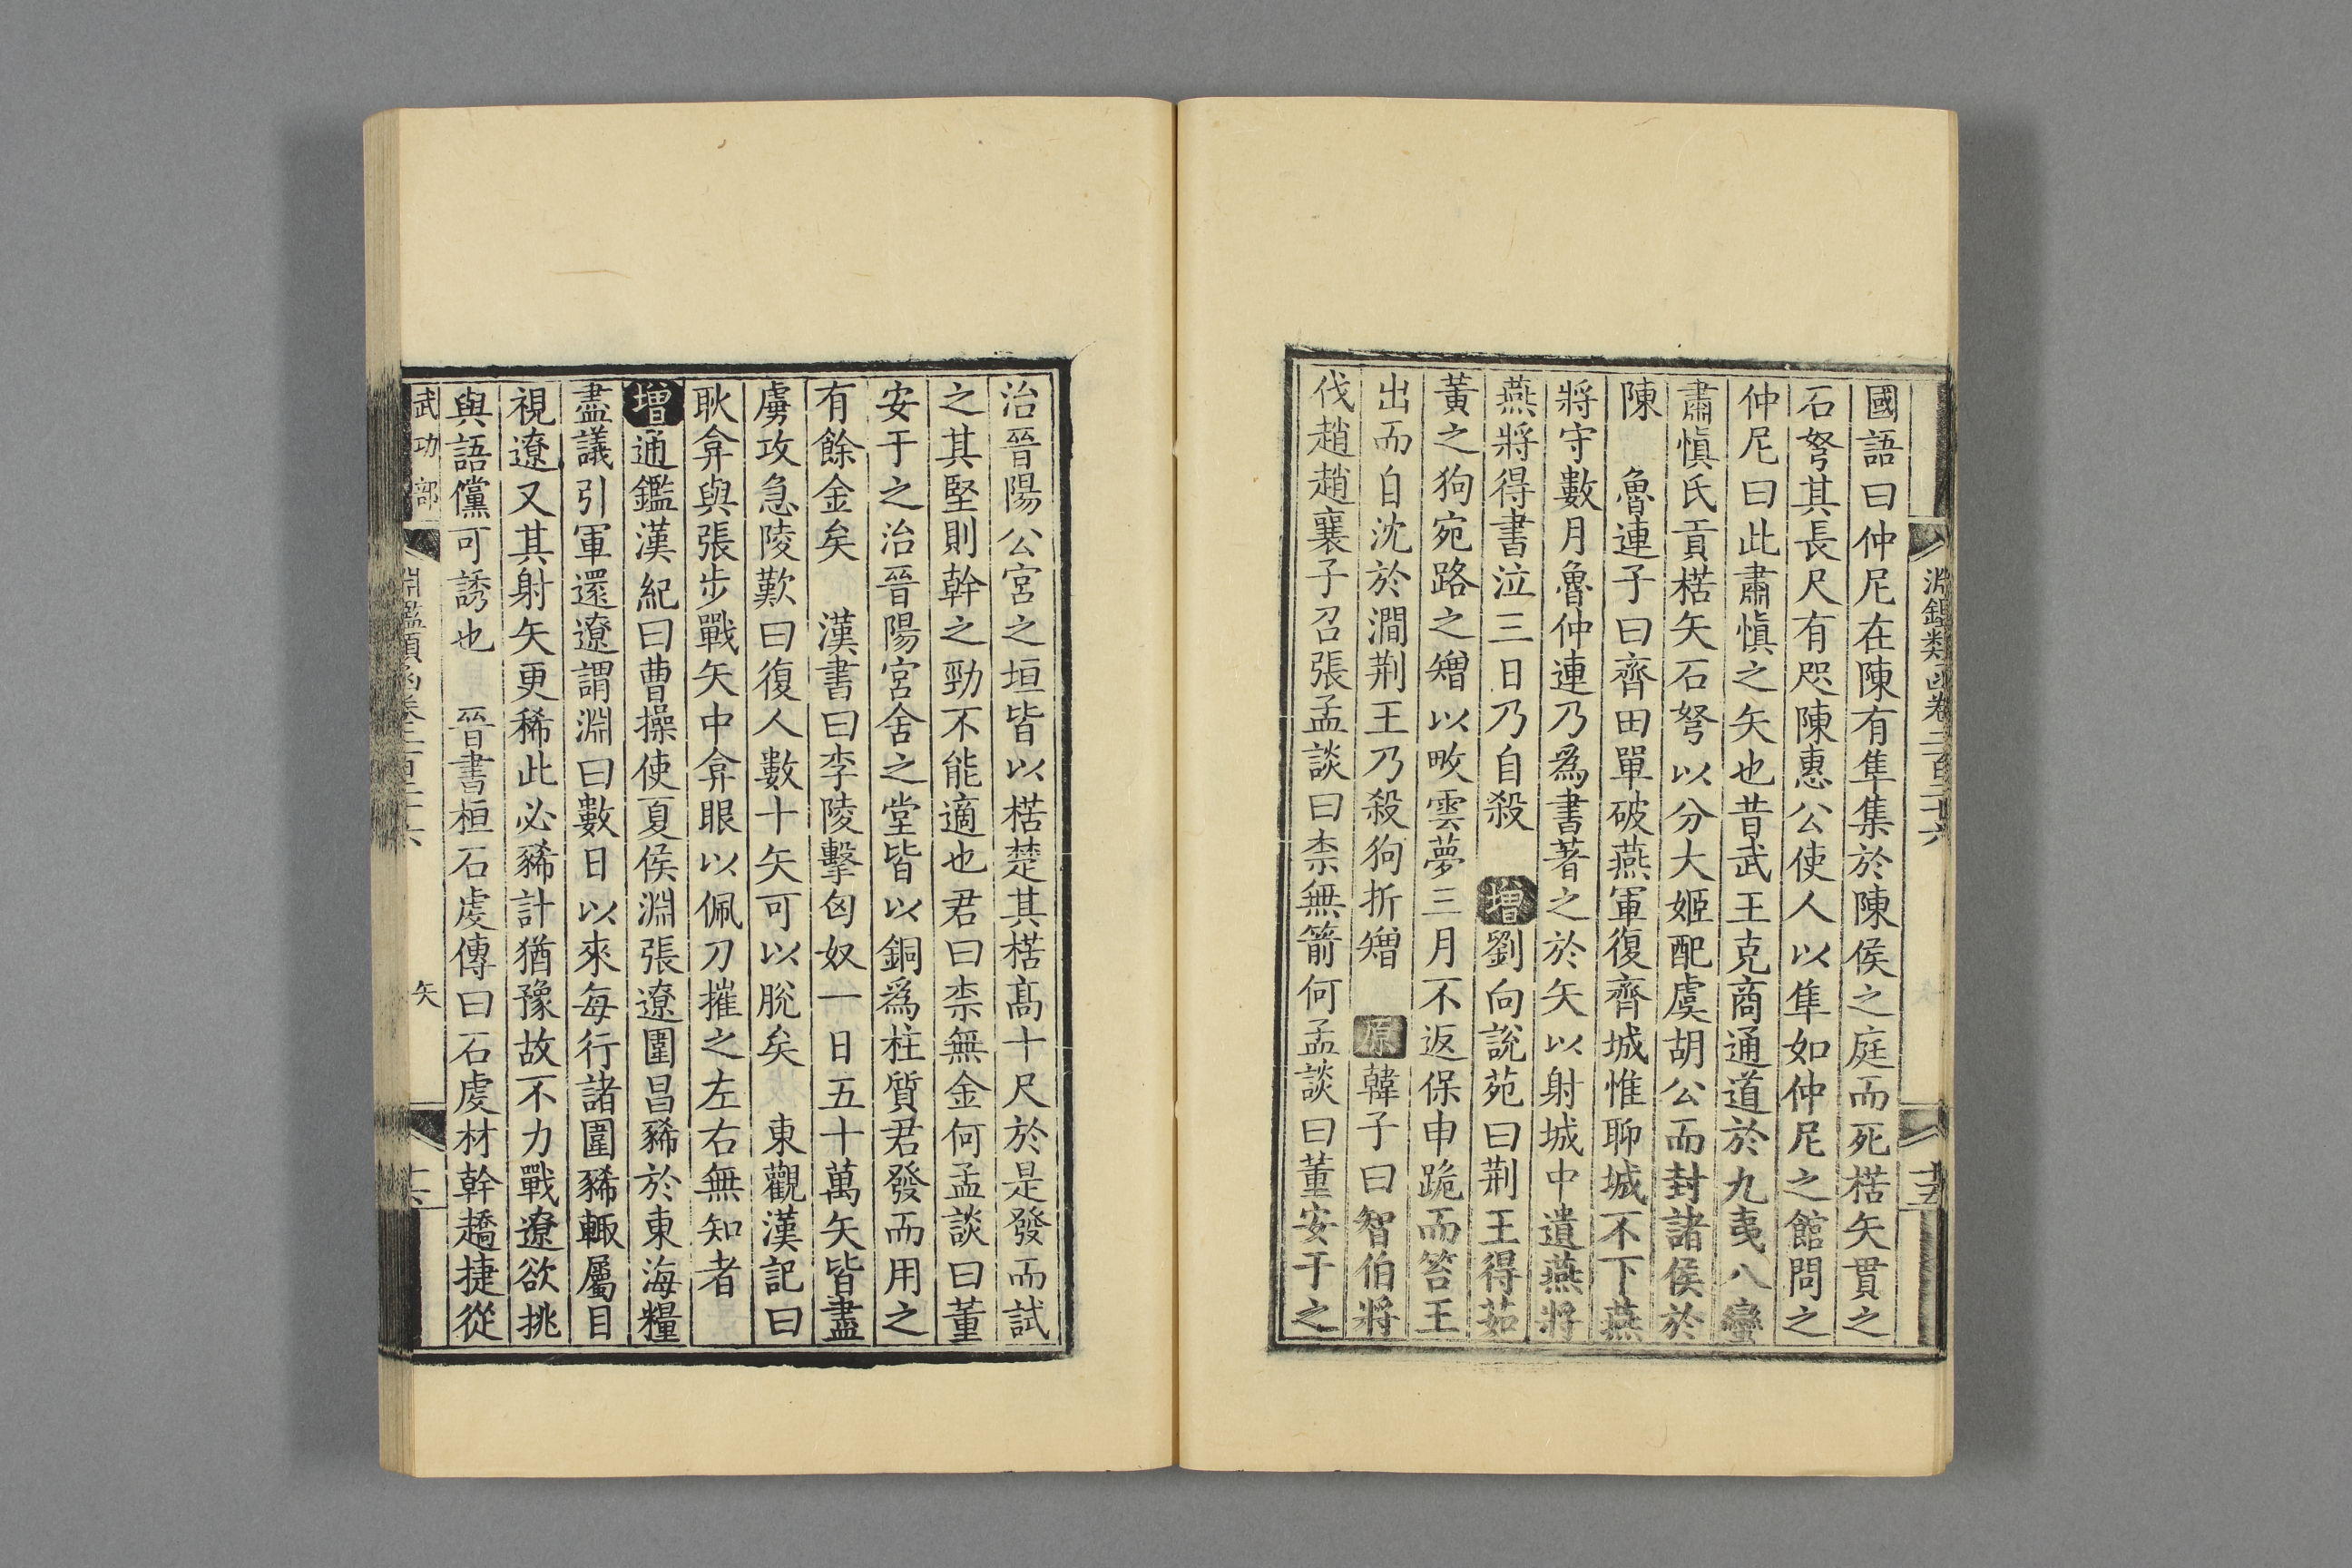 淵鑑類函卷二百二十六
十五
國語曰仲尼在陳有隼集於陳侯之庭而死楛矢貫之
石弩其長尺有咫陳惠公使人以隼如仲尼之館問之
仲尼曰此肅愼之矢也昔武王克商通道於九夷八蠻
肅愼氏貢楛矢石弩以分大姬配虞胡公而封諸侯於
陳　魯連子曰齊田單破燕軍復齊城惟聊城不下燕
將守數月魯仲連乃爲書著之於矢以射城中遺燕將
燕將得書泣三日乃自殺　增劉向說苑曰荆王得茹
黃之狗宛路之矰以畋雲夢三月不返保申跪而笞王
出而自沈於澗荆王乃殺狗折矰　原韓子曰智伯將
伐趙趙襄子召張孟談曰柰無箭何孟談曰董安于之
治晉陽公宮之垣皆以楛楚其楛髙十尺於是發而試
之其堅則幹之勁不能適也君曰柰無金何孟談曰董
安于之治晉陽宮舍之堂皆以銅爲柱質君發而用之
有餘金矣　漢書曰李陵擊匈奴一日五十萬矢皆盡
虜攻急陵歎曰復人數十矢可以脫矣　東觀漢記曰
耿弇與張步戰矢中弇眼以佩刀摧之左右無知者
增通鑑漢紀曰曹操使夏侯淵張遼圍昌豨於東海糧
盡議引軍還遼謂淵曰數日以來每行諸圍豨輙屬目
視遼又其射矢更稀此必豨計猶豫故不力戰遼欲挑
與語儻可誘也　晉書桓石虔傳曰石虔材幹趫捷從
武功部
淵鑑類函卷二百二十六
矢
十六